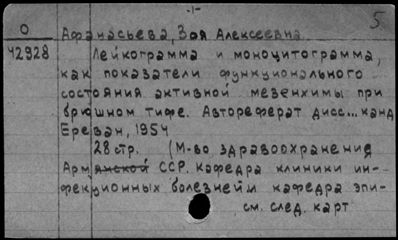 -1-
5
О
42928
Афанасьева, Зоя Алексеевна
Лейкограмма и моноцитограмма,
как показатели функционального
состояния активной мезенхимы при
брюшном тифе. Автореферат дисс... канд
Ереван, 1954
28 стр. (М-во здравоохранения
Армянской ССР. Кафедра клиники ин-
фекционных болезнейм кафедра эпи-
см. след. карт